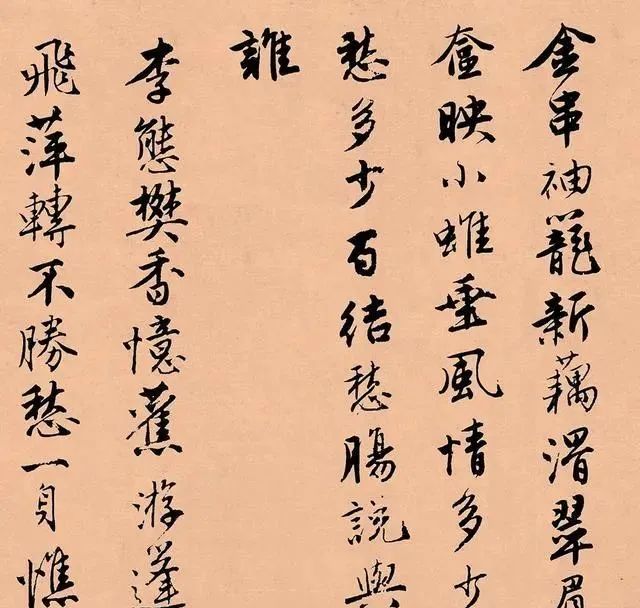 金串袖籠新藕滑翠眉
奩映小蜼垂風情多少
愁多少百結愁腸說與
誰
李態樊香憶舊游蓬
飛萍轉不勝愁一身憔